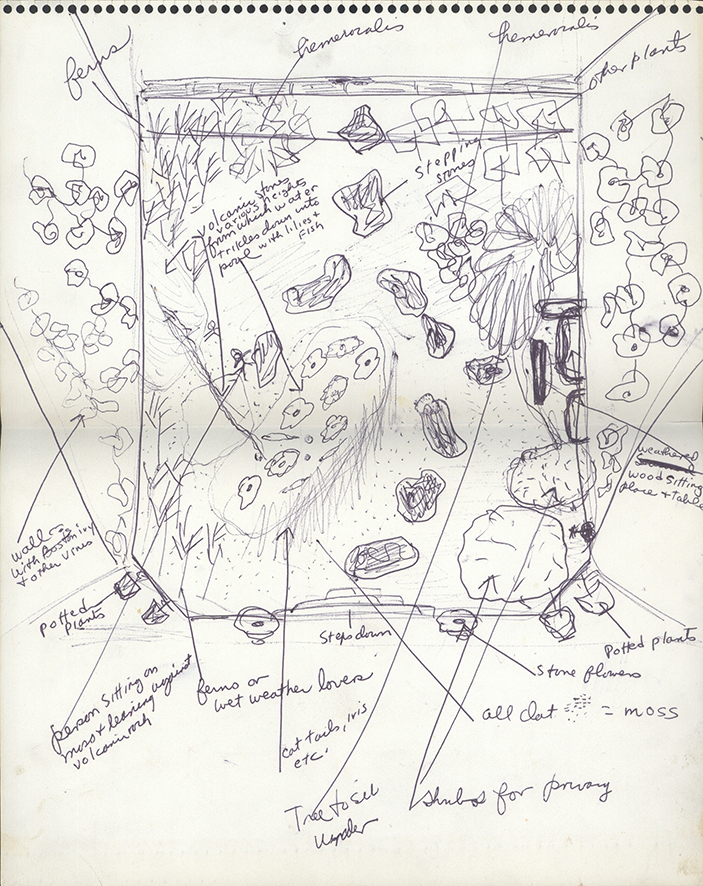 ferns
hemerocalis
hemerocalis
other plants
volcanic stones
various heights
from which water
trickles down into
pool with lilies +
fish
stepping
stones
weathered
wood sitting
place + table
walls
with Boston ivy
+ other vines
potted
plants
Steps down
Potted plants
stone flowers
person sitting on
moss + leaning against
volcanic rock
ferns or
wet weather lovers
all dat = moss
cat tails, iris
etc.
Tree to sit
under
shrubs for privacy